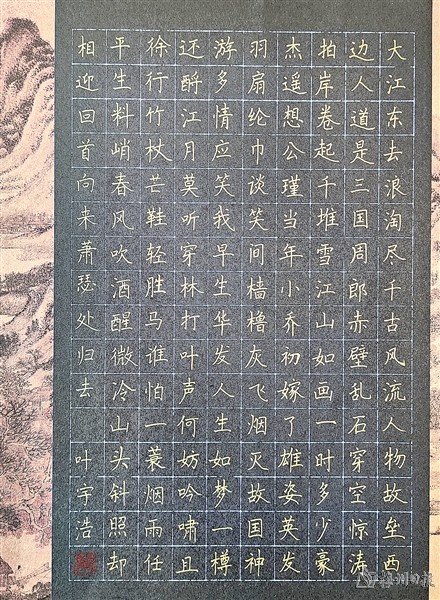 大江东去浪淘尽千古风流人物故垒西
边人道是三国周郎赤壁乱石穿空惊涛
拍岸卷起千堆雪江山如画一时多少豪
杰遥想公瑾当年小乔初嫁了雄姿英发
羽扇纶巾谈笑间樯橹灰飞烟灭故国神
游多情应笑我早生华发人生如梦一樽
还酹江月莫听穿林打叶声何妨吟啸且
徐行竹杖芒鞋轻胜马谁怕一蓑烟雨任
平生料峭春风吹酒醒微冷山头斜照却
相迎回首向来萧瑟处归去 叶宇浩